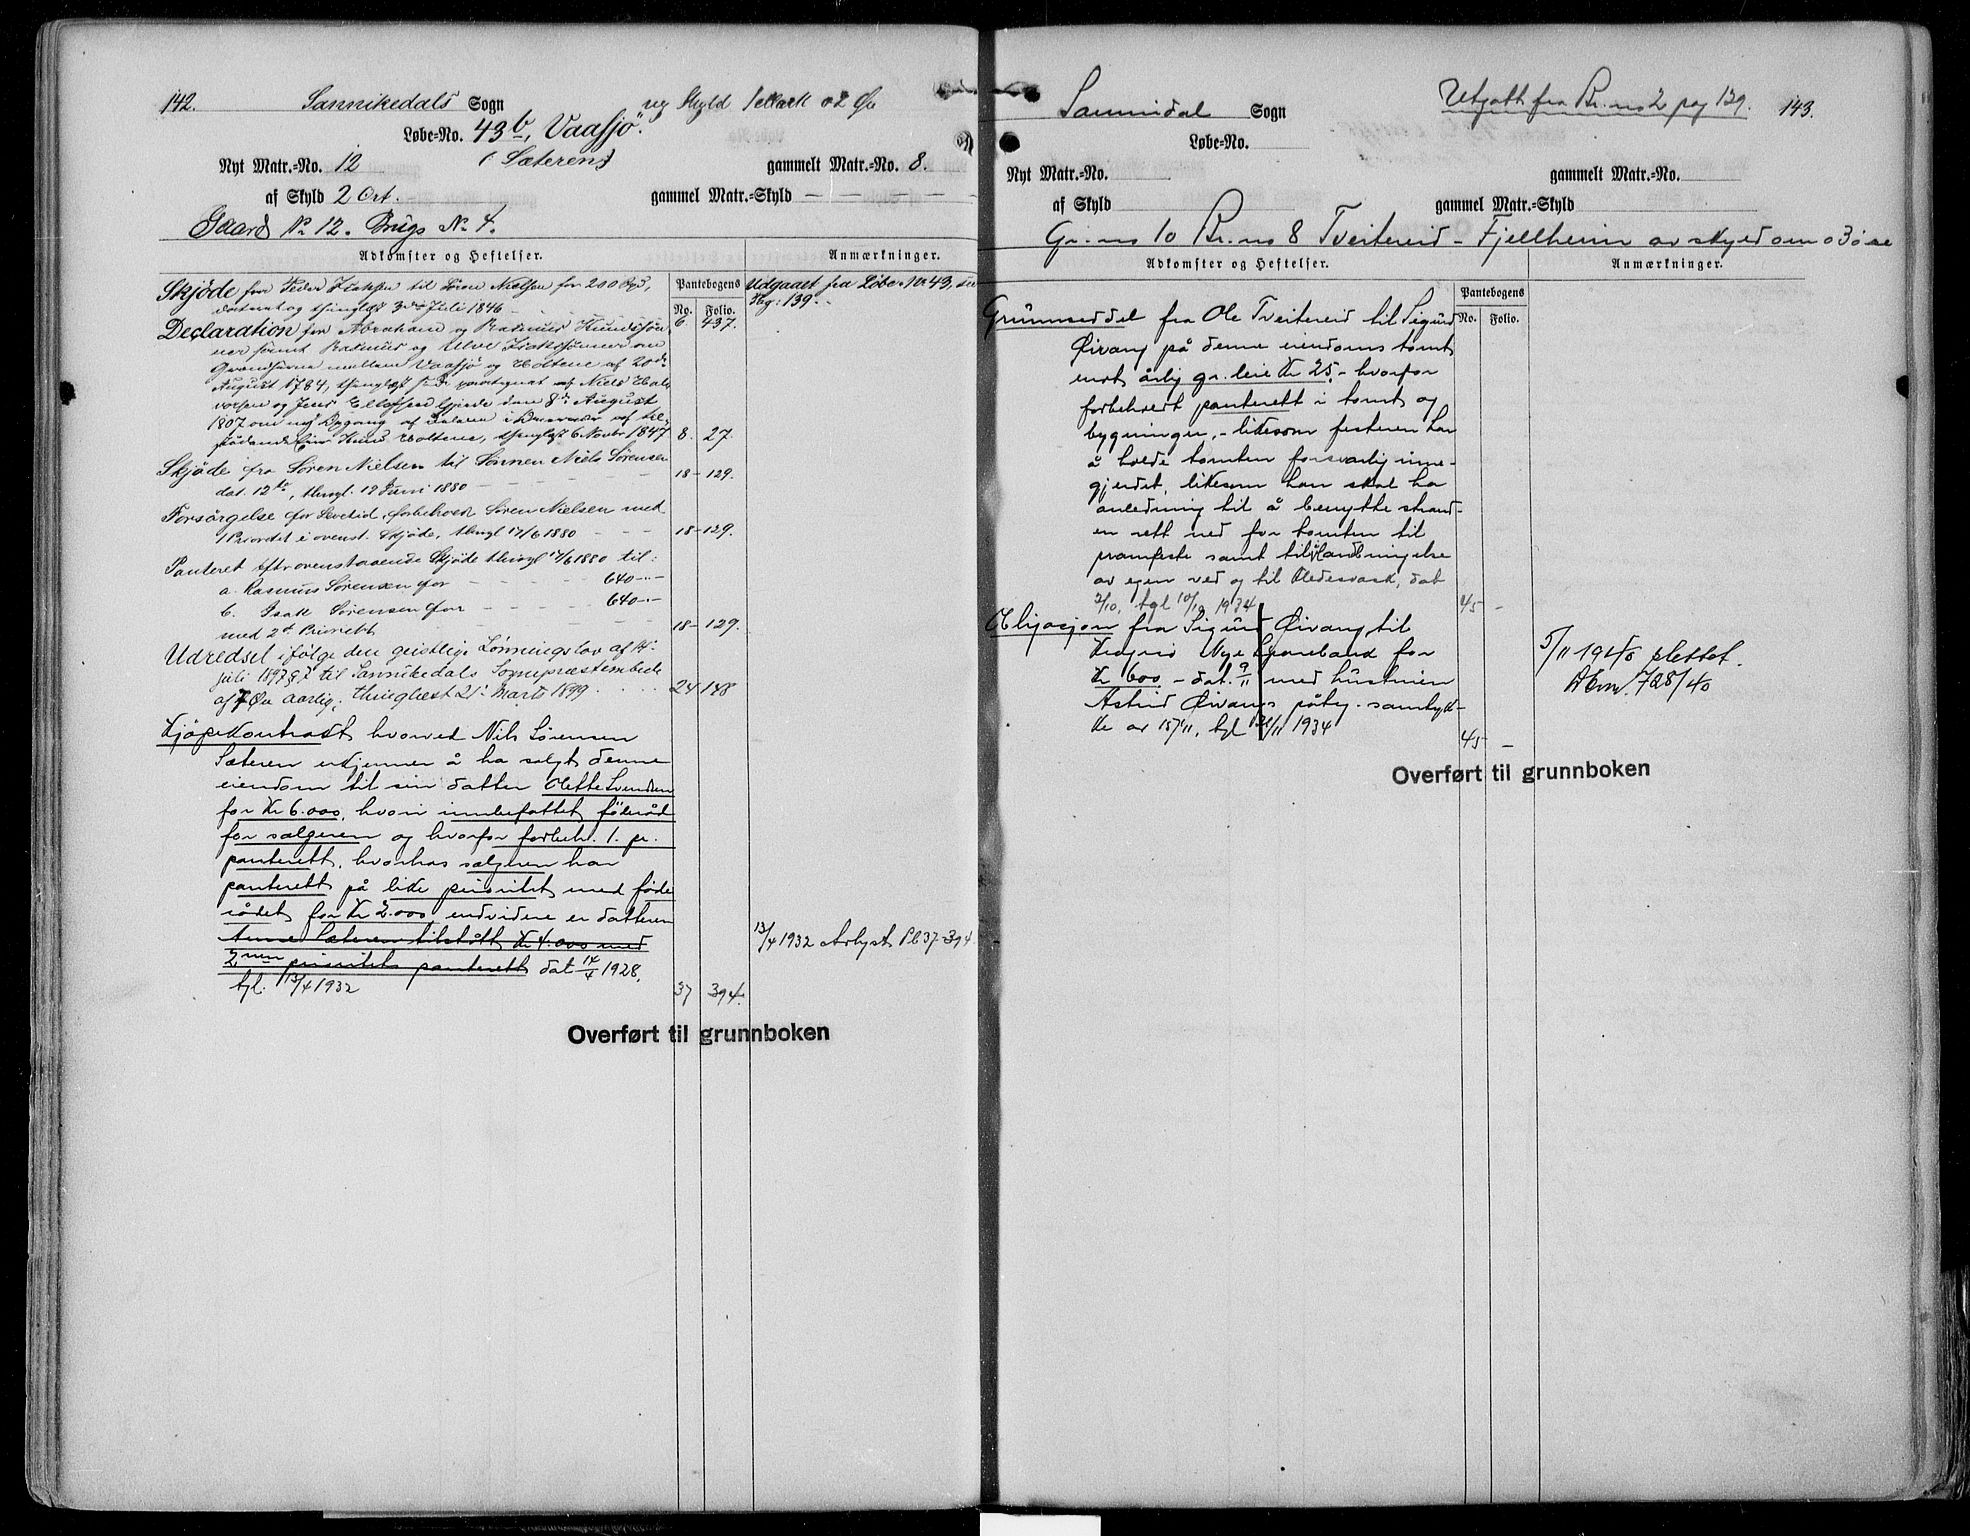 142. Sannikedals Sogn ny Skyld 1 Mark 02 Øre
Løbe=No. 43b, Vaasjø".
(Sæteren)
Nyt Matr.=No. 12 gammelt Matr.=No. 8.
af Skyld 2 Ort. gammel Matr.=Skyld — — — —
Gaard No 12. Brugs No 4.
Adkomster og Heftelser. Anmærkninger.
Pantebogens
No. Folio.
Skjøde fra Peder Isaksen til Søren Nielsen for 200 Spd,
datert og thinglæst 3die Juli 1846 6. 437.
Udgaaet fra Løbe No 43, see
Pag: 139.
Declaration fra Abraham og Rasmus Knudssøn-
ner samt Rasmus og Ulve Isakssønner om
Grændserne mellem Vaasjø og Holtene af 20de
August 1784, thinglæst
vorsen og Jens Ellefsen Gjerde den 8de August
1807 om ny Opgang af Delene i Overvær af til-
stødende Eier Knud Holtene, thinglæst 6 Novbr 1847 8. 27.
Skjøde fra Søren Nielsen til Sønnen Niels Sørensen
dat. 12te, thingl. 17 Juni 1880 — — — 18-129.
Forsørgelse for Levetid, forbeholdt Søren Nielsen med
1 Prioritet i ovenst. Skjøde, thingl 17/6 1880 — — 18-129.
Panteret efter ovenstaaende Skjøde thingl 17/6 1880 til:
a. Rasmus Sørensen for — — — 640-..-
b. Isak Sørensen for — — — 640-.-
med 2den Prioritet 18-129.
Udredsel ifølge den geistlige Lønningslov af 14.
juli 1897 § 7 til Sannikedals Sognepræstembede
af 7 Øre aarlig; thinglæst 21. Marts 1899 . . . . 24 148
Kjøpekontrakt hvorved Nils Sørensen
Sæteren erkjenner å ha solgt denne
eiendom til sin datter Olette Svendsen
for Kr 6.000, hvori innbefattet føderåd
for selgeren og hvorfor forbeh. 1. pr.
panterett, hvorhos selgeren har
panterett på like prioritet med føde
rådet for Kr 2.000, endvidere er datteren
Anne Sæteren tilstått Kr 4.000 med
2nen prioritets panterett dat 14/4 1928,
tgl. 13/4 1932 37 394.
13/4 1932 Avlyst Pb 37-394
Overført til grunnboken
Sannidal Sogn Utgått fra Br. no 2 pag 139. 143.
Løbe=No.
Nyt Matr.=No. gammelt Matr.=No.
af Skyld gammel Matr.=Skyld
Gr. no 10 Br. no 8 Tveitereid - Fjellheim av skyld om 03 øre
Adkomster og Heftelser. Anmærkninger.
Pantebogens
No. Folio.
Grunnseddel fra Ole Tveitereid til Sigurd
Øivang på denne eiendoms tomt
mot årlig gr. leie Kr 25,- hvorfor
forbeholdt panterett i tomt og
bygninger, - likesom festeren har
å holde tomten forsvarlig inne-
gjerdet, likesom han skal ha
anledning til å benytte strand-
en rett ned for tomten til
pramfeste samt tilvlandbringelse
av egen ved og til klesvask, dat
2/10, tgl 10/10 1934 45 -
Obligasjon fra Sigurd Øivang til
Kragerø Nye Sparebank for
Kr 600 - dat. 9/11 med hustruen
Astrid Øivangs påteg. samtyk-
ke av 15/11, tgl 21/11 1934 45 -
5/11 1940 slettet.
728/40
Overført til grunnboken